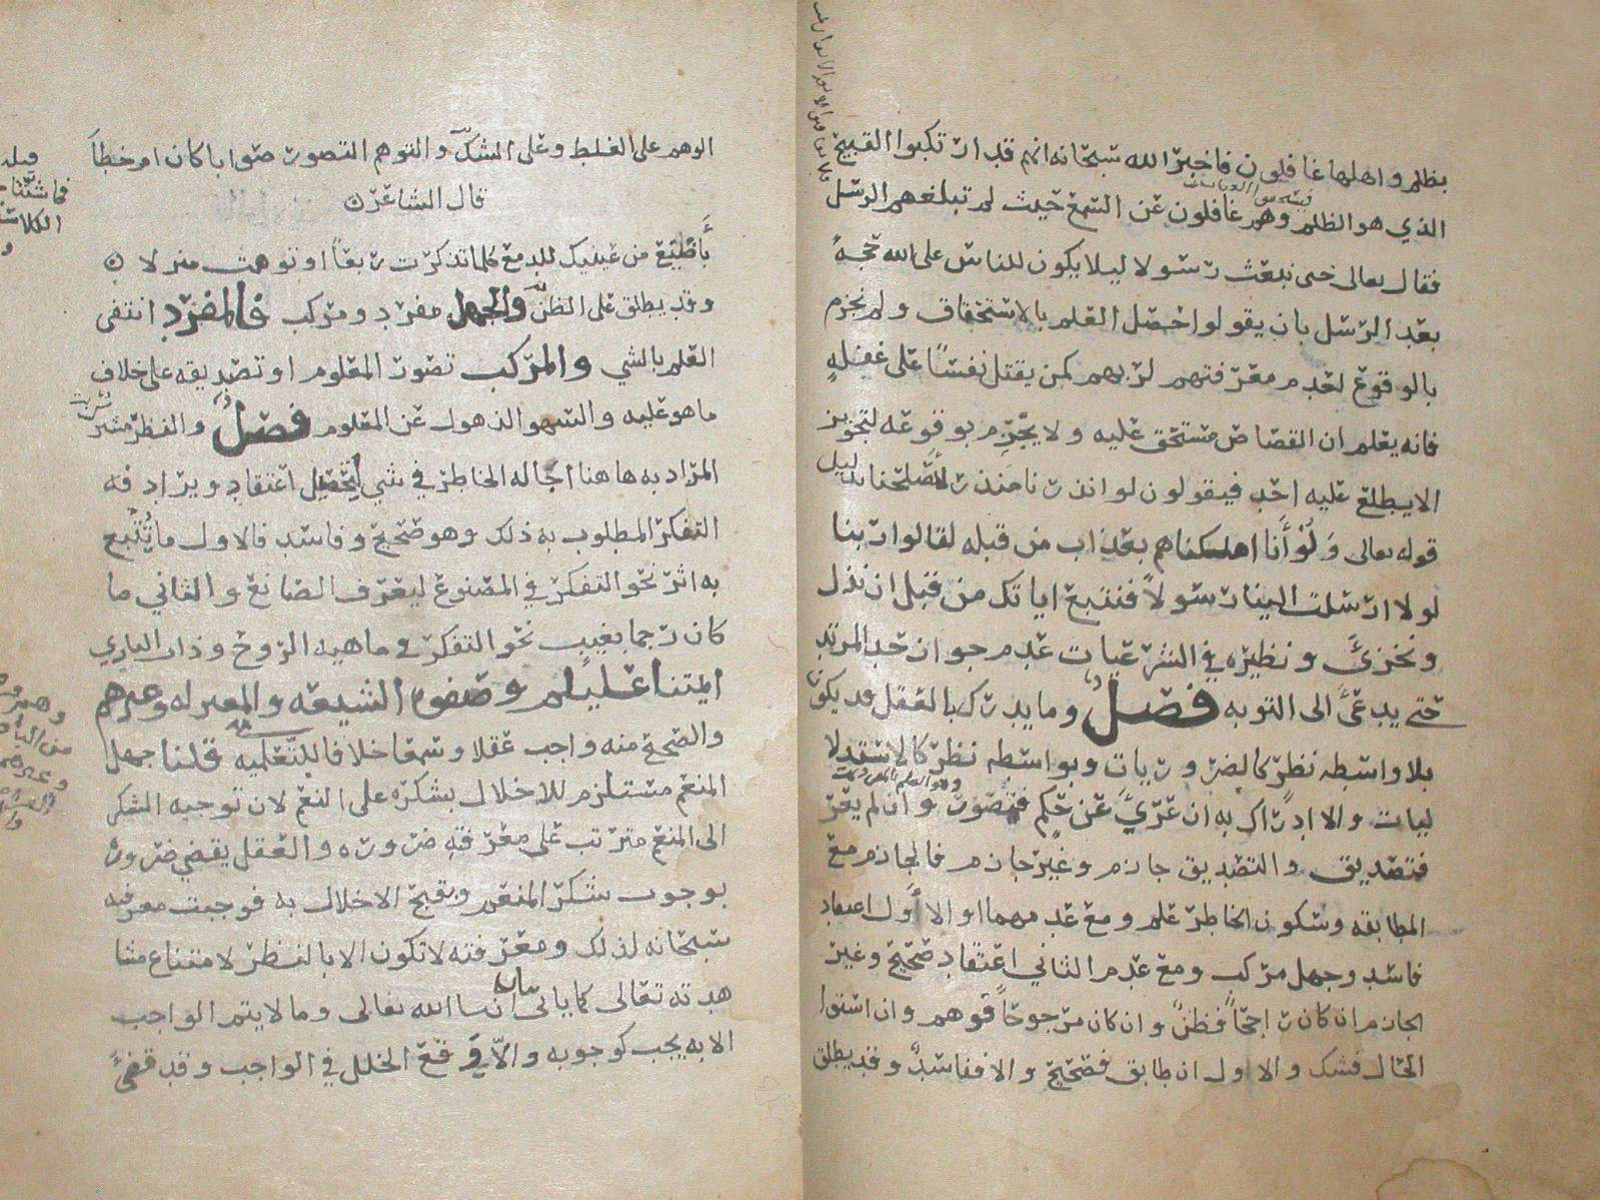 بظلم واهلها غافلون فاخبر الله سبحانه انهم قد ارتكبوا القبيح
الذي هو الظلم وهم غافلون عن السمع حيث لم تبلغهم الرسل
فقال تعالى حتى نبعث رسولا ليلا يكون للناس على الله حجة
بعد الرسل بان يقولوا حصل العلم بالاستحقاق ولم نجزم
بالوقوع لعدم معرفتهم لربهم كمن يقتل نفسًا على غفلةٍ
فانه يعلم ان القصاص مستحق عليه ولا يجزم بوقوعه لتجويز
الا يطلع عليه احد فيقولون لو انذرنا منذر لاصلحنا بدليل
قوله تعالى وَلَوْ أَنا اهلكناهم بعذاب من قبله لقالوا ربنا
لولا ارسلت الينا رسولاً فنتبع اياتك من قبل ان نذل
ونخزى ونظيره في الشرعيات عدم جواز حد المرتد
حتى يدعى الى التوبه فصل وما يدرك بالعقل قد يكون
بلا واسطه نظر كالضروريات وبواسطه نظر كالاستدلا
ليات والادراك به ان عَرّيَ عن حكم فتصور وان لم يعر
فتصديق والتصديق جازم وغير جازم فالجازم مع
المطابقه وسكون الخاطر علم ومع عدمهما او الاول اعتقاد
فاسد وجهل مركب ومع عدم الثاني اعتقاد صحيح وغير
الجازم ان كان راجحًا فظن وان كان مرجوحًا فوهم وان استوا
الحال فشك والاول ان طابق فصحيح والا ففاسد وقد يطلق
الوهم على الغلط وعلى الشك والتوهم التصور صوابا كان او خطأً
قال الشاعر
من عينيك للدمع كلما تذكرت ربعًا او توهمت منزلا
وقد يطلق على الظن والجهل مفرد ومركب فالمفرد انتفى
العلم بالشي والمركب تصور المعلوم او تصديقه على خلاف
ما هو عليه والسهو الذهول عن المعلوم فصل والنظر مشترك
المراد به هاهنا اجاله الخاطر في شي لتحصيل اعتقاد ويرادفه
التفكر المطلوب به ذلك وهو صحيح وفاسد فالاول ما تُتُبع
به اثر نحو التفكر في المصنوع ليعرف الصانع والثاني ما
كان رجما بغيب نحو التفكر في ماهية الروح وذات الباري
ايمتنا عليلم وصفوه الشيعه والمعتزله وغيرهم
والصحيح منه واجب عقلا وسمعا خلافا للتعليميه قلنا جهل
المنعم مستلزم للاخلال بشكره على النعم لان توجيه الشكر
الى المنعم مترتب على معرفته ضروره والعقل يقضي ضرورة
بوجوب شكر المنعم وبقبح الاخلال به فوجبت معرفته
سبحانه لذلك ومعرفته لا تكون الا بالنظر لامتناع مشا
هدته تعالى كما ياتي بيانه ان شا الله تعالى وما لا يتم الواجب
الا به يجب كوجوبه والا وقع الخلل في الواجب وقد قضي